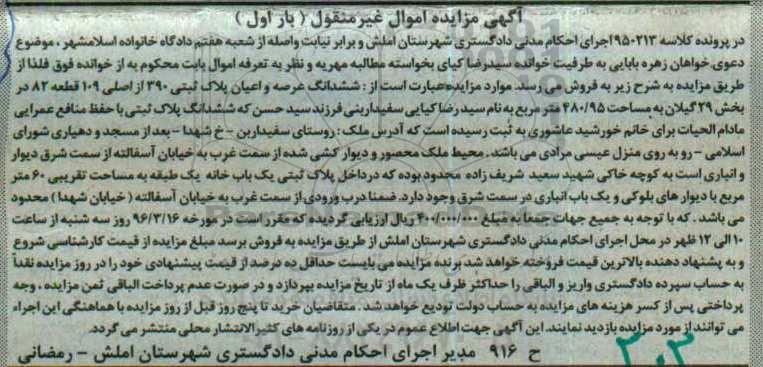 آگهی مزایده اموال غیرمنقول ( بار اول )
در پرونده کلاسه ۹۵۰۲۱۳ اجرای احکام مدنی دادگستری شهرستان املش و برابر نیابت واصله از شعبه هفتم دادگاه خانواده اسلامشهر ، موضوع
دعوی خواهان زهره بابایی به طرفیت خوانده سیدرضا کیای بخواسته مطالبه مهریه و نظر به تعرفه اموال بابت محکوم به از خوانده فوق فلذا از
طریق مزایده به شرح زیر به فروش می رسد. موارد مزایده عبارت است از : ششدانگ عرصه و اعیان پلاک ثبتی ۳۹۰ از اصلی ۱۰۹ قطعه ۸۲ در
بخش ۲۹ گیلان به مساحت ۴۸۰/۹۵ متر مربع به نام سید رضا کیایی سفیدارینی فرزند سید حسن که ششدانگ پلاک ثبتی با حفظ منافع عمرایی
مادام الحیات برای خانم خورشید عاشوری به ثبت رسیده است که آدرس ملک : روستای سفیدارین - خ شهدا - بعد از مسجد و دهیاری شورای
اسلامی - رو به روی منزل عیسی مرادی می باشد . محیط ملک محصور و دیوار کشی شده از سمت غرب به خیابان آسفالته از سمت شرق دیوار
و انباری است به کوچه خاکی شهید سعید شریف زاده محدود بوده که در داخل پلاک ثبتی یک باب خانه یک طبقه به مساحت تقریبی ۶۰ متر
مربع با دیوار های بلوکی و یک باب انباری در سمت شرق وجود دارد. ضمنا درب ورودی از سمت غرب به خیابان آسفالته ( خیابان شهدا ) محدود
می باشد . که با توجه به جمیع جهات جمعا به مبلغ ۴۰۰/۰۰۰/۰۰۰ ریال ارزیابی گردیده که مقرر است در مورخه ۹۶/۳/۱۶ روز سه شنبه از ساعت
۱۰ الی ۱۲ ظهر در محل اجرای احکام مدنی دادگستری شهرستان املش از طریق مزایده به فروش برسد مبلغ مزایده از قیمت کارشناسی شروع
و به پشنهاد دهنده بالاترین قیمت فروخته خواهد شد برنده مزایده می بایست حداقل ده درصد از قیمت پیشنهادی خود را در روز مزایده نقداً
به حساب سپرده دادگستری واریز و الباقی را حداکثر ظرف یک ماه از تاریخ مزایده بپردازد و در صورت عدم پرداخت الباقی ثمن مزایده ، وجه
پرداختی پس از کسر هزینه های مزایده به حساب دولت تودیع خواهد شد . متقاضیان خرید تا پنج روز قبل از روز مزایده با هماهنگی این اجراء
می توانند از مورد مزایده بازدید نمایند. این آگهی جهت اطلاع عموم در یکی از روزنامه های کثیرالانتشار محلی منتشر می گردد.
ح ۹۱۶ مدیر اجرای احکام مدنی دادگستری شهرستان املش - رمضانی
۳۰۳